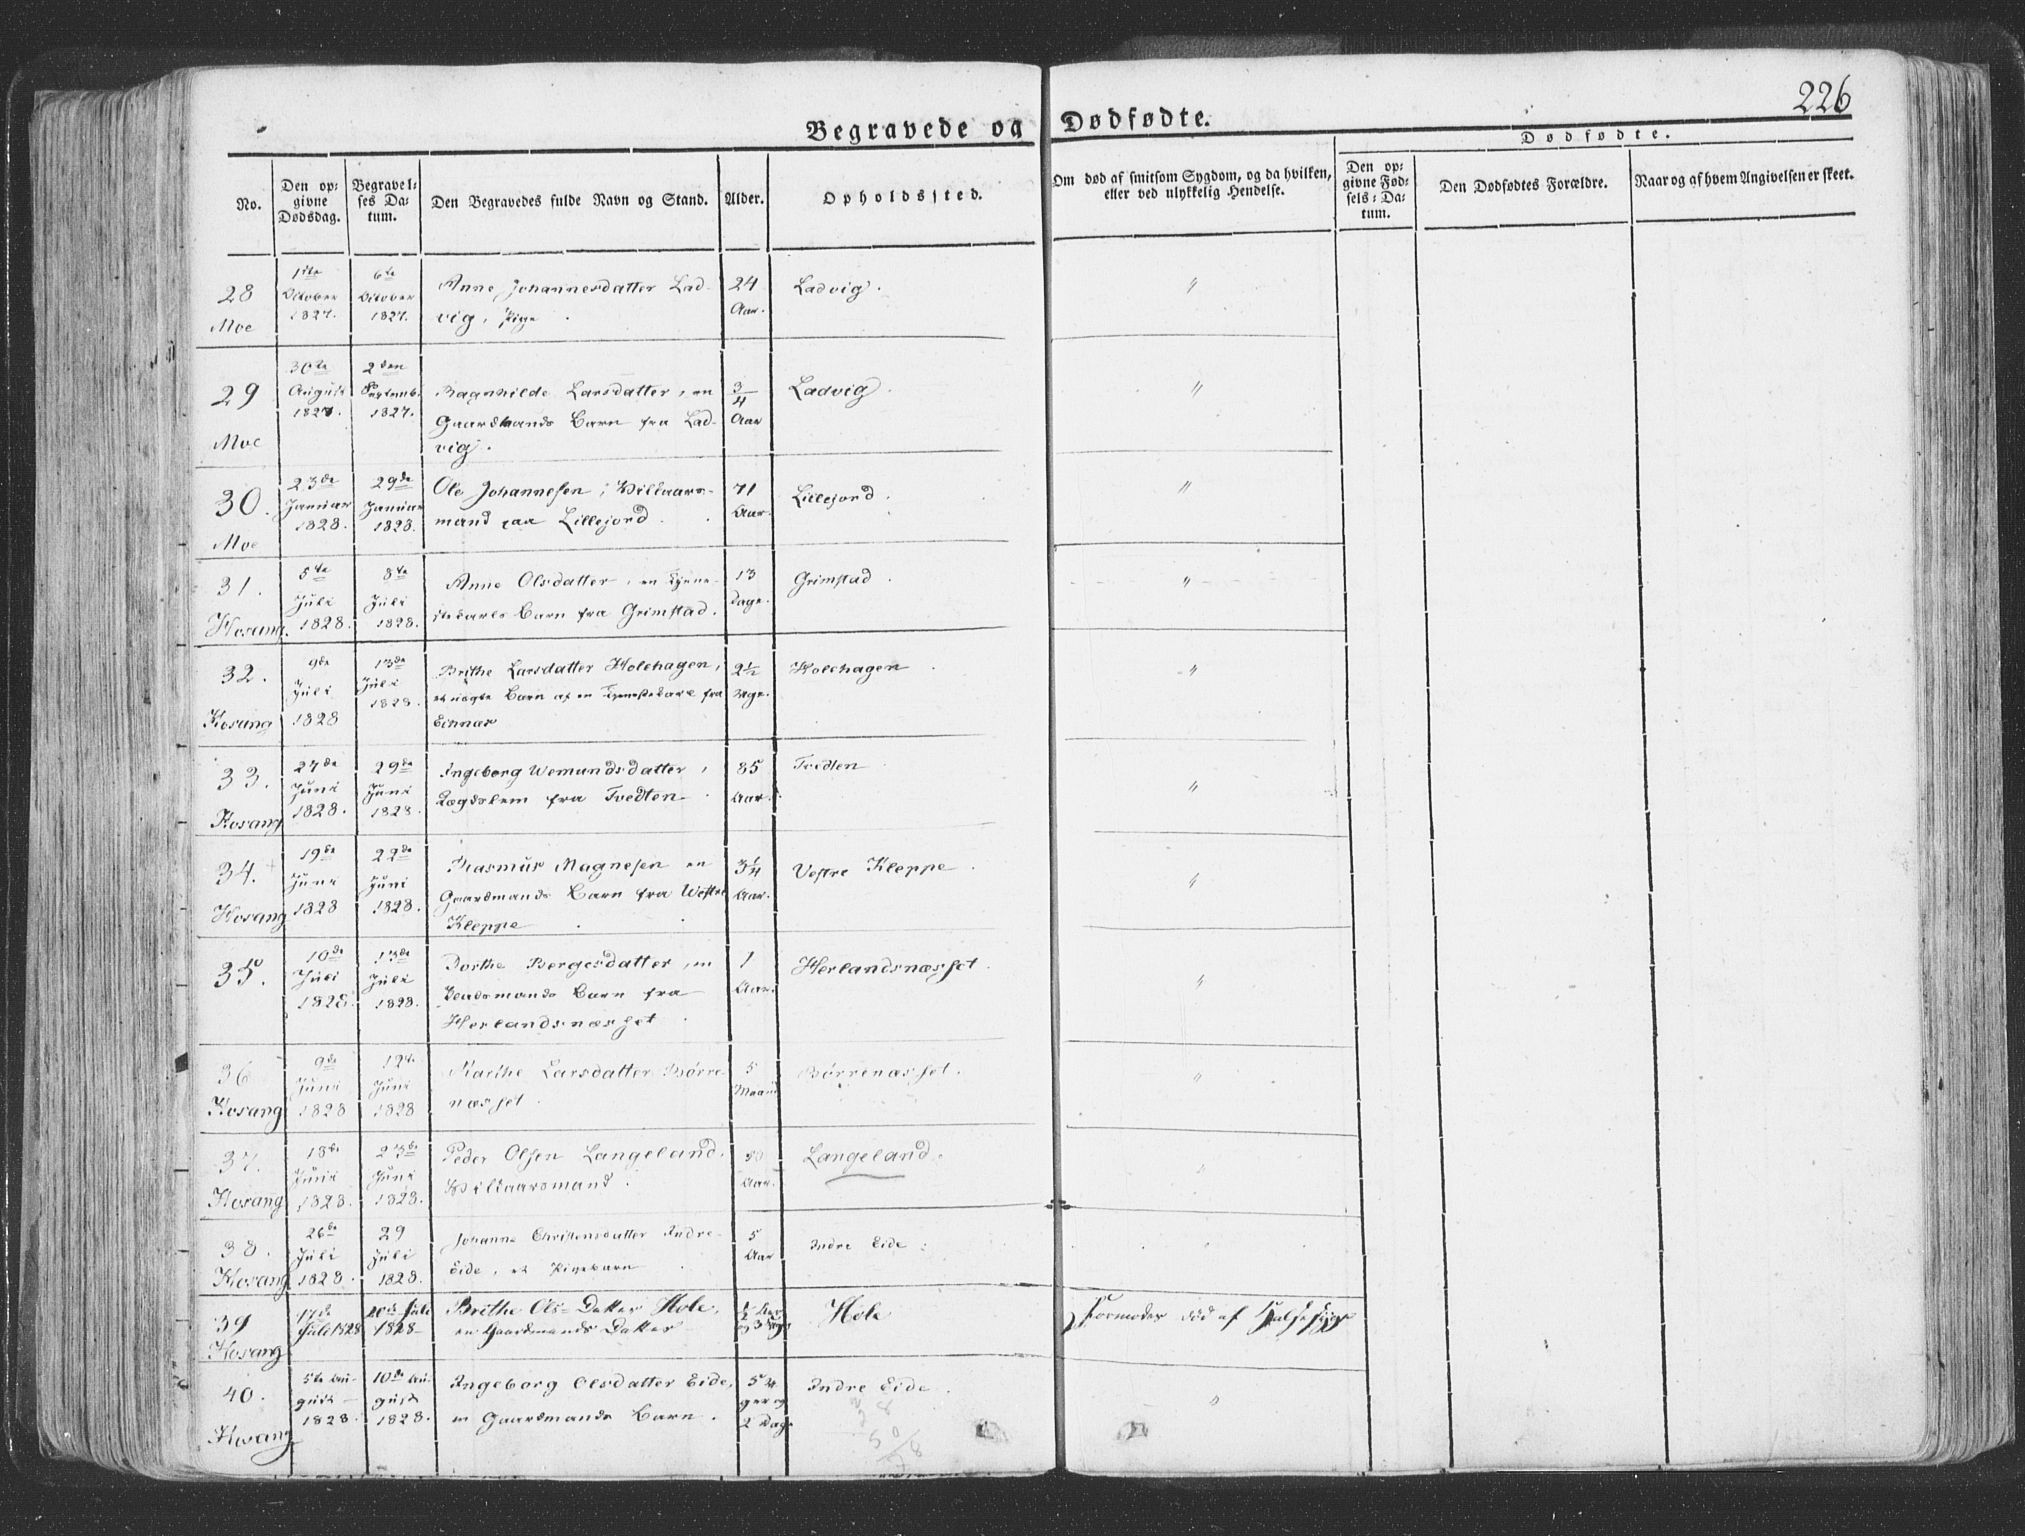 226
Begravede og Dødfødte.
Dødfødte.
No.
Den op-
givne
Dødsdag.
Begravel-
ses Da-
tum.
Den Begravedes fulde Navn og Stand.
Alder.
Opholdssted.
Om død af smitsom Sygdom, og da hvilken,
eller ved ulykkelig Hendelse.
Den op-
givne Fød-
sels-Da-
tum.
Den Dødfødtes Forældre.
Naar og af hvem Angivelsen er skeet.
28
Moe
1ste
October
1827.
6te
October
1827.
Anne Johannesdatter Lad-
vig, Pige
24
Aar.
Ladvig.
"
29
Moe
30te
August
1827.
2den
Septemb.
1827.
Ragnhilde Larsdatter, en
Gaardmands Barn fra Lad-
vig.
3/4
Aar
Ladvig.
"
30.
Moe
23de
Januar
1828.
29de
Januar
1828.
Ole Johannesen, Vilkaars-
mand paa Lillejord.
71
Aar.
Lillejord.
"
31.
Hosang.
5te
Juli
1828.
8te
Juli
1828.
Anne Olsdatter, en Tjene-
stekarls Barn fra Grimstad.
13
Dage.
Grimstad.
"
32.
Hosang
9de
Juli
1828
13de
Juli
1828.
Brithe Larsdatter Holehagen,
et uægte Barn af en Tjenestekarl fra
Echnæs
2½
Uge.
Holehagen
"
33.
Hosang
27de
Juni
1828.
29de
Juni
1828.
Ingeborg Wemundsdatter,
Lægdslem fra Tvedten.
85
Aar.
Tvedten
"
34.
Hosang
19de
Juni
1828
22de
Juni
1828.
Rasmus Magnesen en
Gaardmands Barn fra Westre
Kleppe
3¼
Aar.
Vestre Kleppe.
"
35.
10de
Juli
1828.
13de
Juli
1828.
Dorthe Bergesdatter, en
Pladsmands Barn fra
Herlandsnæsset.
1
Aar.
Herlandsnæsset.
"
36
Hosang
9de
Juni
1828
12te
Juni
1828
Marthe Larsdatter Børre-
næsset.
5
Maan
Børrenæsset.
"
37.
Hosang
18de
Juni
1828.
23de
Juni
1828.
Peder Olsen Langeland.
Vilkaarsmand.
Aar.
Langeland.
"
38.
Hosang
26de
Juli
1828.
29
Juli
1828.
Johanne Christensdatter Indre-
Eide, et Pigebarn
5
Aar
Indre Eide.
39
Hosang
17de
Juli 1828
20de Juli
1828-
Brithe Ols-Datter Hole,
en Gaardmands Datter-
½ Aar
og 3 Uger
Hole
Formodes død af Halsesyge
40.
Hosang
5te Au-
gust
1828.
10de Au-
gust
1828.
Ingeborg Olsdatter Eide,
en Gaardmands Barn.
5 U-
ger og
2 Dage
Indre Eide.
"